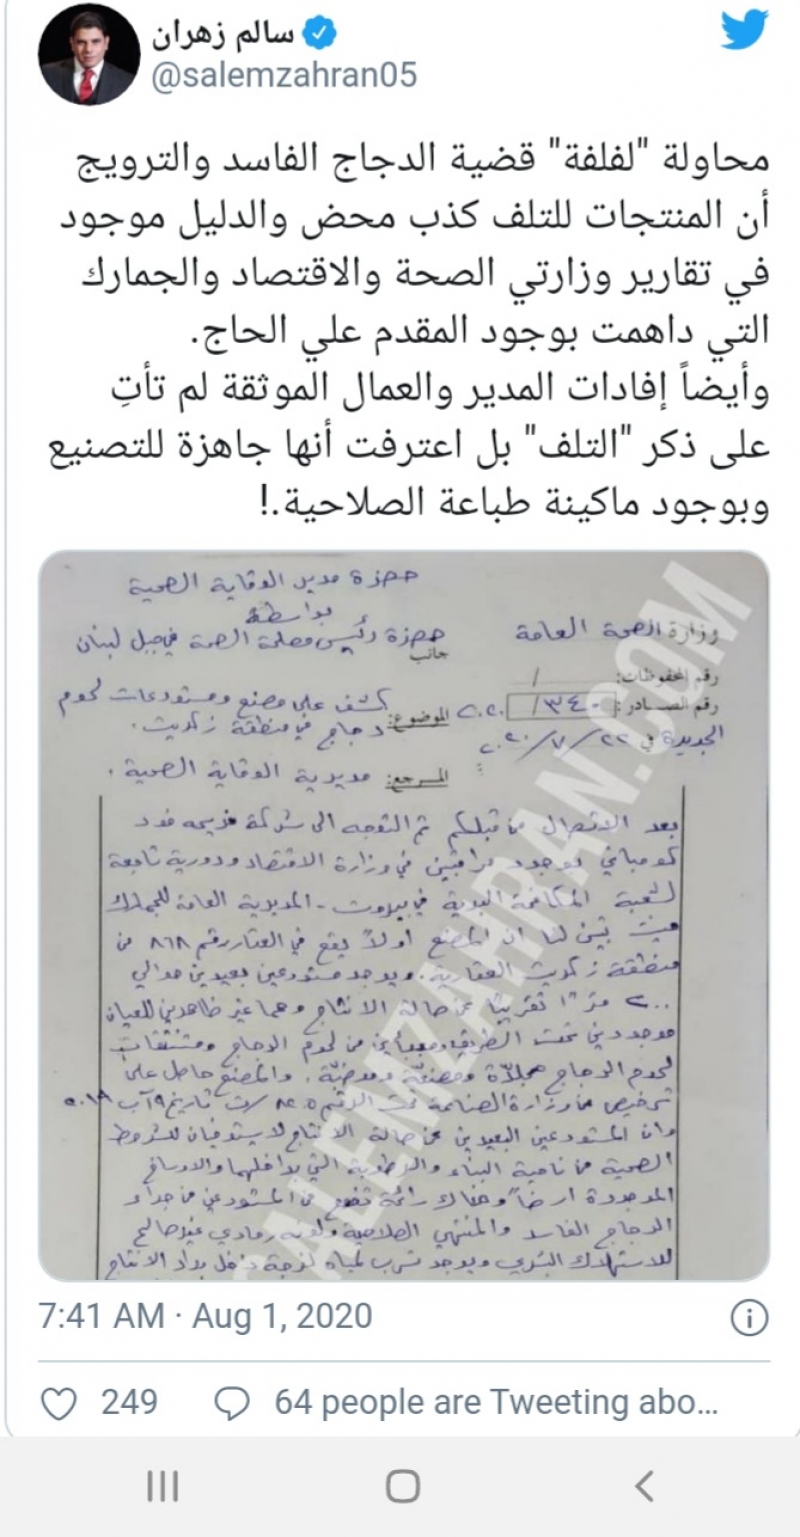 سالم زهران
@salemzahran05
محاولة "لفلفة" قضية الدجاج الفاسد والترويج
أن المنتجات للتلف كذب محض والدليل موجود
في تقارير وزارتي الصحة والاقتصاد والجمارك
التي داهمت بوجود المقدم علي الحاج.
وأيضاً إفادات المدير والعمال الموثقة لم تأتِ
على ذكر "التلف" بل اعترفت أنها جاهزة للتصنيع
وبوجود ماكينة طباعة الصلاحية.!
حضرة مدير الوقاية الصحية
بواسطة
وزارة الصحة العامة
جانب حضرة رئيس مصلحة الصحة في جبل لبنان
رقم المحفوظات: /
رقم الصادر: ١٣٤٠/ ٢٠٢٠
الموضوع: كشف على مصنع ومستودعات لحوم
دجاج في منطقة زكريت.
الجديدة في ٢٢/٧/٢٠٢٠
المرجع: مديرية الوقاية الصحية.
بعد الاتصال من قبلكم تم التوجه الى شركة فود
بوجود مراقبين في وزارة الاقتصاد ودورية تابعة
لشعبة المكافحة البرية في بيروت - المديرية العامة للجمارك
حيث تبين لنا ان المصنع اولاً يقع في العقار رقم ٨٦٨ من
منطقة زكريت العقارية. ويوجد مستودعين بعيدين حوالي
٢٠٠ متراً تقريباً عن صالة الانتاج وهما غير ظاهرين للعيان
موجودين تحت الطريق من لحوم الدجاج ومشتقات
لحوم الدجاج مجلّدة ومصنعة وموضبّة. والمصنع حاصل على
ترخيص من وزارة الصناعة تحت الرقم ٨٤٠٥/ت تاريخ ٩ آب ٢٠١٩
وان المستودعين البعيدين عن صالة الانتاج لا يستوفيان للشروط
الصحية من ناحية البناء والرطوبة التي بداخلهما والاوساخ
الموجودة ارضاً وهناك رائحة تفوح من المستودعين من جراء
الدجاج الفاسد والمنتهي الصلاحية ولونه رمادي غير صالح
للاستهلاك البشري ويوجد تسرب لمياه لزجة داخل براد الانتاج
SALEMZAHRAN.COM
7:41 AM · Aug 1, 2020
249
64 people are Tweeting abo...